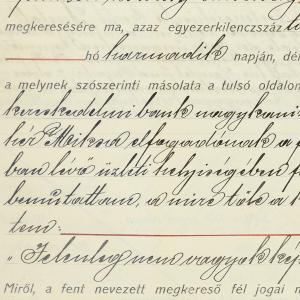 megkeresésére ma, azaz egyezerkilenczszáz
hó harmadik napján, dé
a melynek szószerinti másolata a tulsó oldalon
kereskedelmi bank nagykani
hér Miksa elfogadónak a f
ban lévő üzleti helyiségében f
bemutattam, a mire tőle a k
tem:
„Jelenleg nem vagyok kép
Miről, a fent nevezett megkereső fél jogai m